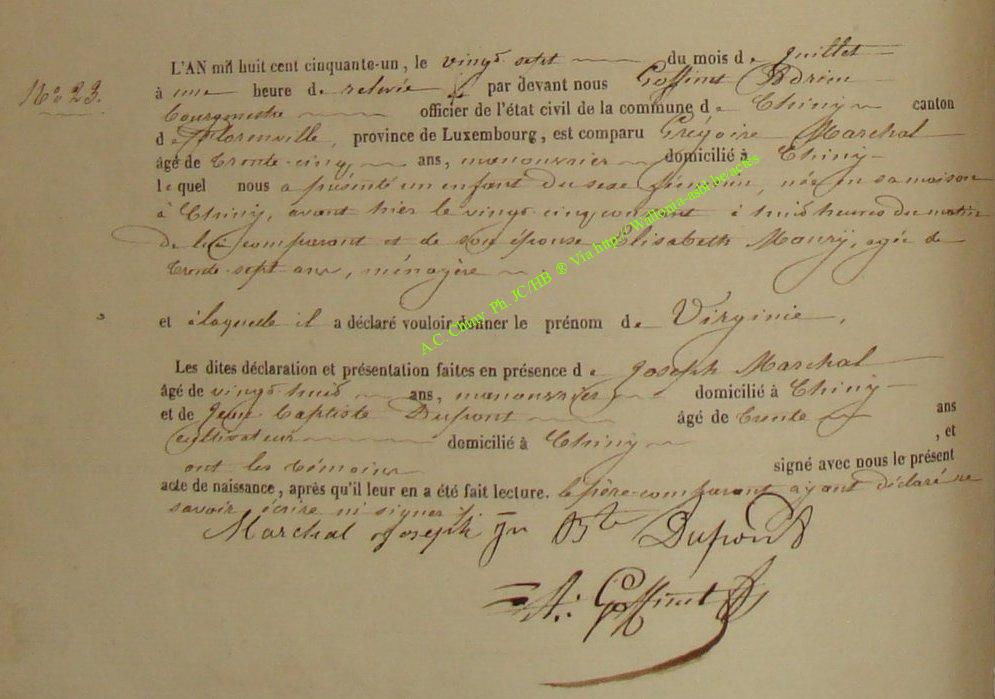 N° 23.
L'AN mil huit cent cinquante-un, le vingt sept du mois de Juillet
à une heure de relevée par devant nous Goffinet Adrien
Bourgmestre officier de l'état civil de la commune de Chiny canton
de Florenville, province de Luxembourg, est comparu Grégoire Marchal
âgé de trente-cinq ans, manouvrier domicilié à Chiny
lequel nous a présenté un enfant du sexe féminin, née en sa maison
à Chiny, avant hier le vingt cinq courant à huit heures du matin
de lui comparant et de son épouse Elisabeth Maury, agée de
trente-sept ans, ménagère
et à laquelle il a déclaré vouloir donner le prénom de Virginie,
Les dites déclaration et présentation faites en présence de Joseph Marchal
âgé de vingt huit ans, manouvrier domicilié à Chiny
et de Jean Baptiste Dupont âgé de trente ans
cultivateur domicilié à Chiny, et
ont les témoins signé avec nous le présent
acte de naissance, après qu'il leur en a été fait lecture. le père comparant ayant déclaré ne
savoir écrire ni signer.
Marchal Joseph Jn Bte Dupont
A: Goffinet
A.C. Chiny Ph. JC/HB ® Via http://Wallonia-asbl.be/actes